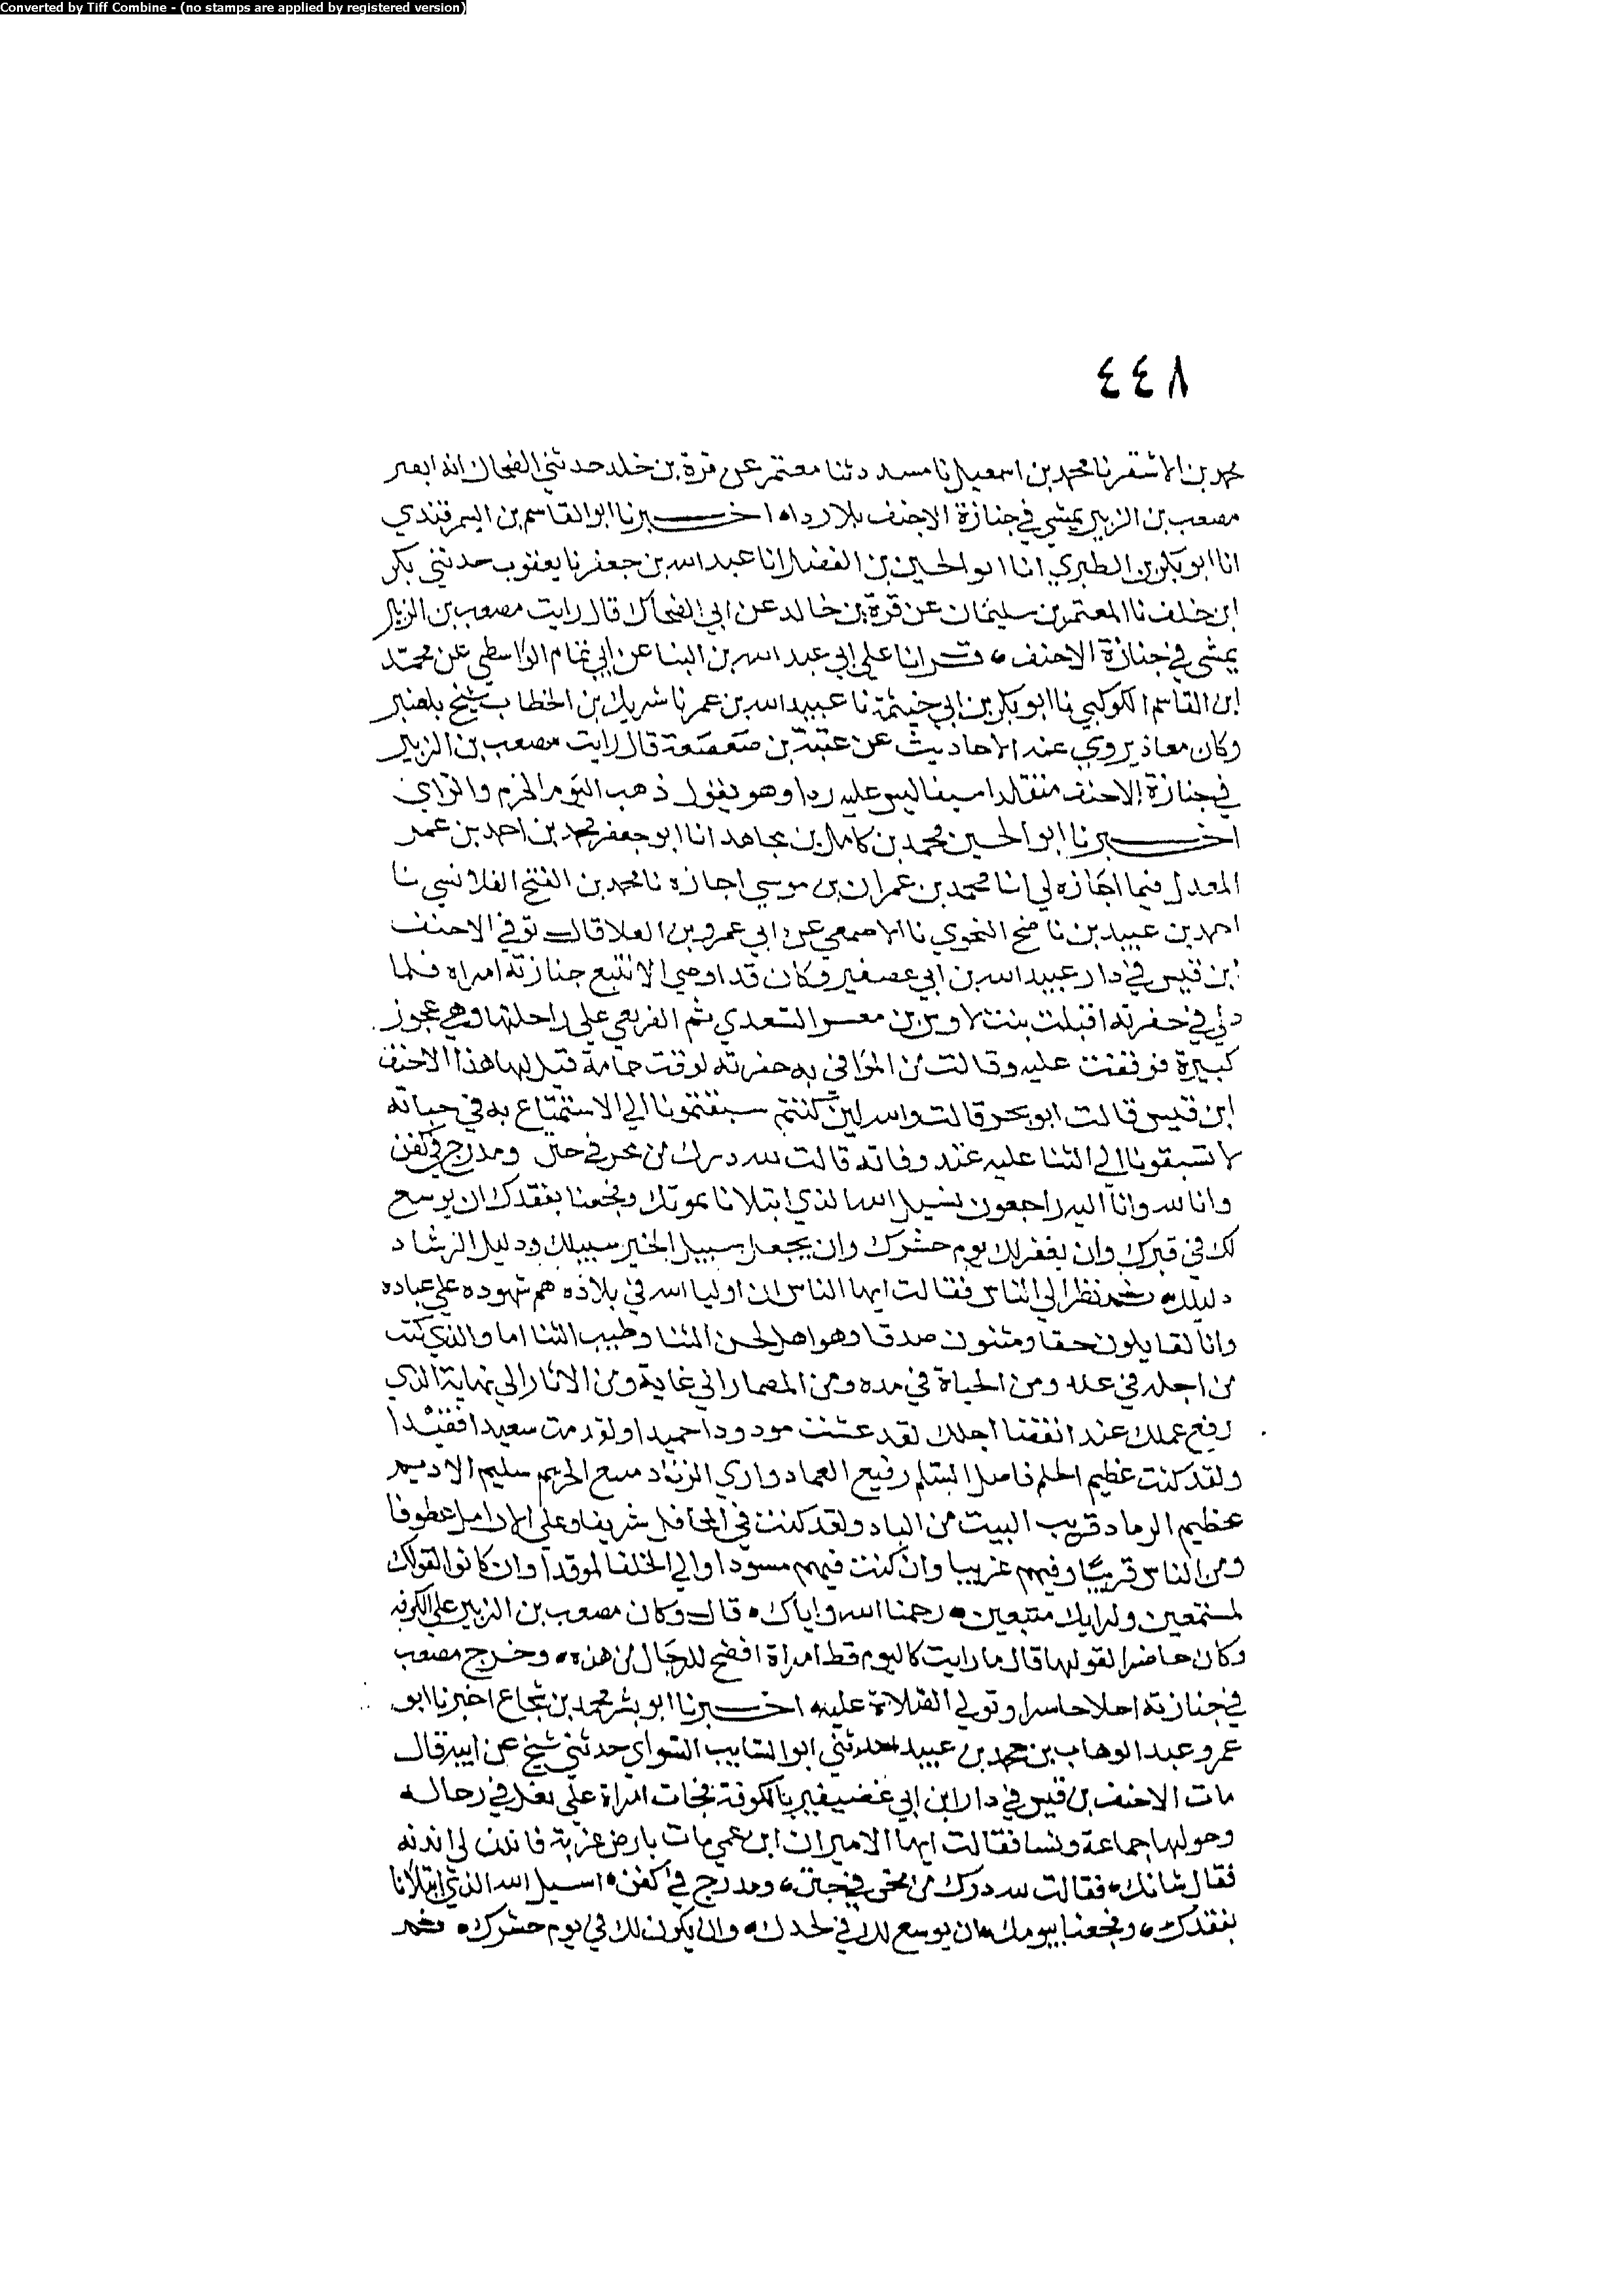 Converted by Tiff Combine - (no stamps are applied by registered version)
٤٤٨
محمد بن الاشقر نا محمد بن اسمعيل نا مسدد ثنا معتمر عن قرة بن خلد حدثني الضحاك انه ابصر
مصعب بن الزبير يمشي في جنازة الاحنف بلا رداه اخبرنا ابو القاسم بن السمرقندي
انا ابو بكر بن الطبري انا ابو الحسين بن الفضل انا عبد الله بن جعفر نا يعقوب حدثني بكر
ابن خلف نا المعتمر بن سليمان عن قرة بن خالد عن ابي الضحاك قال رايت مصعب بن الزبير
يمشي في جنازة الاحنف، قرانا علي ابي عبد الله بن البنا عن ابي تمام الواسطي عن محمد
ابن القاسم الكوكبي نا ابو بكر بن ابي خيثمة نا عبيد الله بن عمر نا شريك بن الخطاب شيخ بلعنبر
وكان معاذ يروي عنه الاحاديث عن عتبة بن صعصعة قال رايت مصعب بن الزبير
في جنازة الاحنف متقلدا سيفا ليس عليه ردا وهو يقول ذهب اليوم الحزم والراي
اخبرنا ابو الحسين محمد بن كامل بن مجاهد انا ابو جعفر محمد بن احمد بن عمر
المعدل فيما اجازه لي انا محمد بن عمران بن موسي اجازه نا محمد بن الفتح القلانسي نا
احمد بن عبيد بن ناصح النحوي نا الاصمعي عن ابي عمرو بن العلا قال توفي الاحنف
ابن قيس في دار عبيد الله بن ابي عصفير وكان قد اوصي الا تتبع جنازته امراه فلما
دلي في حفرته اقبلت بنت لاوس بن معر السعدي ثم القريعي علي راحلتها وهي عجوز
كبيرة فوقفت عليه وقالت من الموافي به حفرته لوقت حمامة قيل لها هذا الاحنف
ابن قيس قالت ابو بحر قالت والله لين كنتم سبقتمونا الي الاستمتاع به في حياته
لا تسبقونا الي الثنا عليه عند وفاته قالت لله درك من مجن في جنن ومدرج في كفن
وانا لله وانا اليه راجعون نسيل الله الذي ابتلانا بموتك وفجعنا بفقدك ان يوسع
لك في قبرك وان يغفر لك يوم حشرك وان يجعل سبيل الخير سبيلك ودليل الرشاد
دليلك ثم نظر الي الناس فقالت ايها الناس ان اوليا الله في بلاده هم شهوده علي عباده
وانا لقايلون حقا ومثنون صدقا وهو اهل لحسن الثنا وطيب الثنا اما والذي كنت
من اجله في عده ومن الحياة في مده ومن المضمار الي غاية ومن الاثار الي نهاية الذي
رفع عملك عند انقضا اجلك لقد عشت مودودا حميدا ولقد مت سعيدا فقيدا
ولقد كنت عظيم الحلم فاضل السلم رفيع العماد واري الزناد منيع الحريم سليم الاديم
عظيم الرماد قريب البيت من الناد ولقد كنت في المحافل شريفا وعلي الارامل عطوفا
ومن الناس قريبا وفيهم غريبا وان كنت فيهم مسودا والي الخلفا لموفدا وان كانوا لقولك
لمستمعين ولرايك متبعين، رحمنا الله واياك، قال وكان مصعب بن الزبير علي الكوفه
وكان حاضرا لقولها قال ما رايت كاليوم قط امراة افصح للرجال من هذه، وخرج مصعب
في جنازته راجلا حاسرا وتولي الصلاة عليه اخبرنا ابو بشر محمد بن شجاع اخبرنا ابو
عمرو عبد الوهاب بن محمد بن عبيد حدثني ابو السايب السواي حدثني شيخ عن ابيه قال
مات الاحنف بن قيس في دار ابن ابي غضيفير بالكوفة فجات امراة علي بغل في رحاله
وحولها جماعة ونسا فقالت ايها الامير ان ابن عمي مات بارض غربة فاذن لي اندبه
فقال شانك، فقالت لله درك من مجن في جنن، ومدرج في كفن، اسيل الله الذي ابتلانا
بفقدك، وفجعنا بيومك، ان يوسع لك في لحدك، وان يكون لك في يوم حشرك، ثم